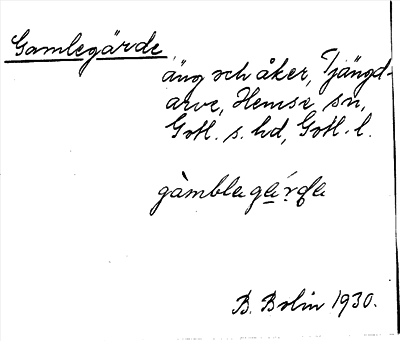 Gamlegärde,
äng och åker, Tjängd-
arve, Hemse sn,
Gotl. s. hd, Gotl. l.
gàmbla gä́rda
B. Bolin 1930.